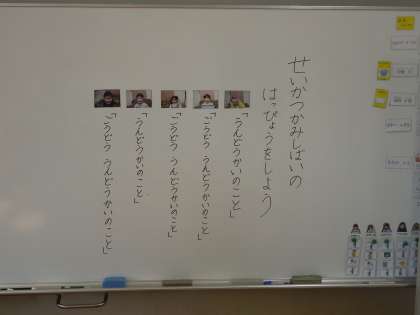 せいかつかみしばいの
はっぴょうをしよう
「うんどうかいのこと」
「こうどう うんどうかいのこと」
「こうどう うんどうかいのこと」
「うんどうかいのこと」
「こうどう うんどうかいのこと」